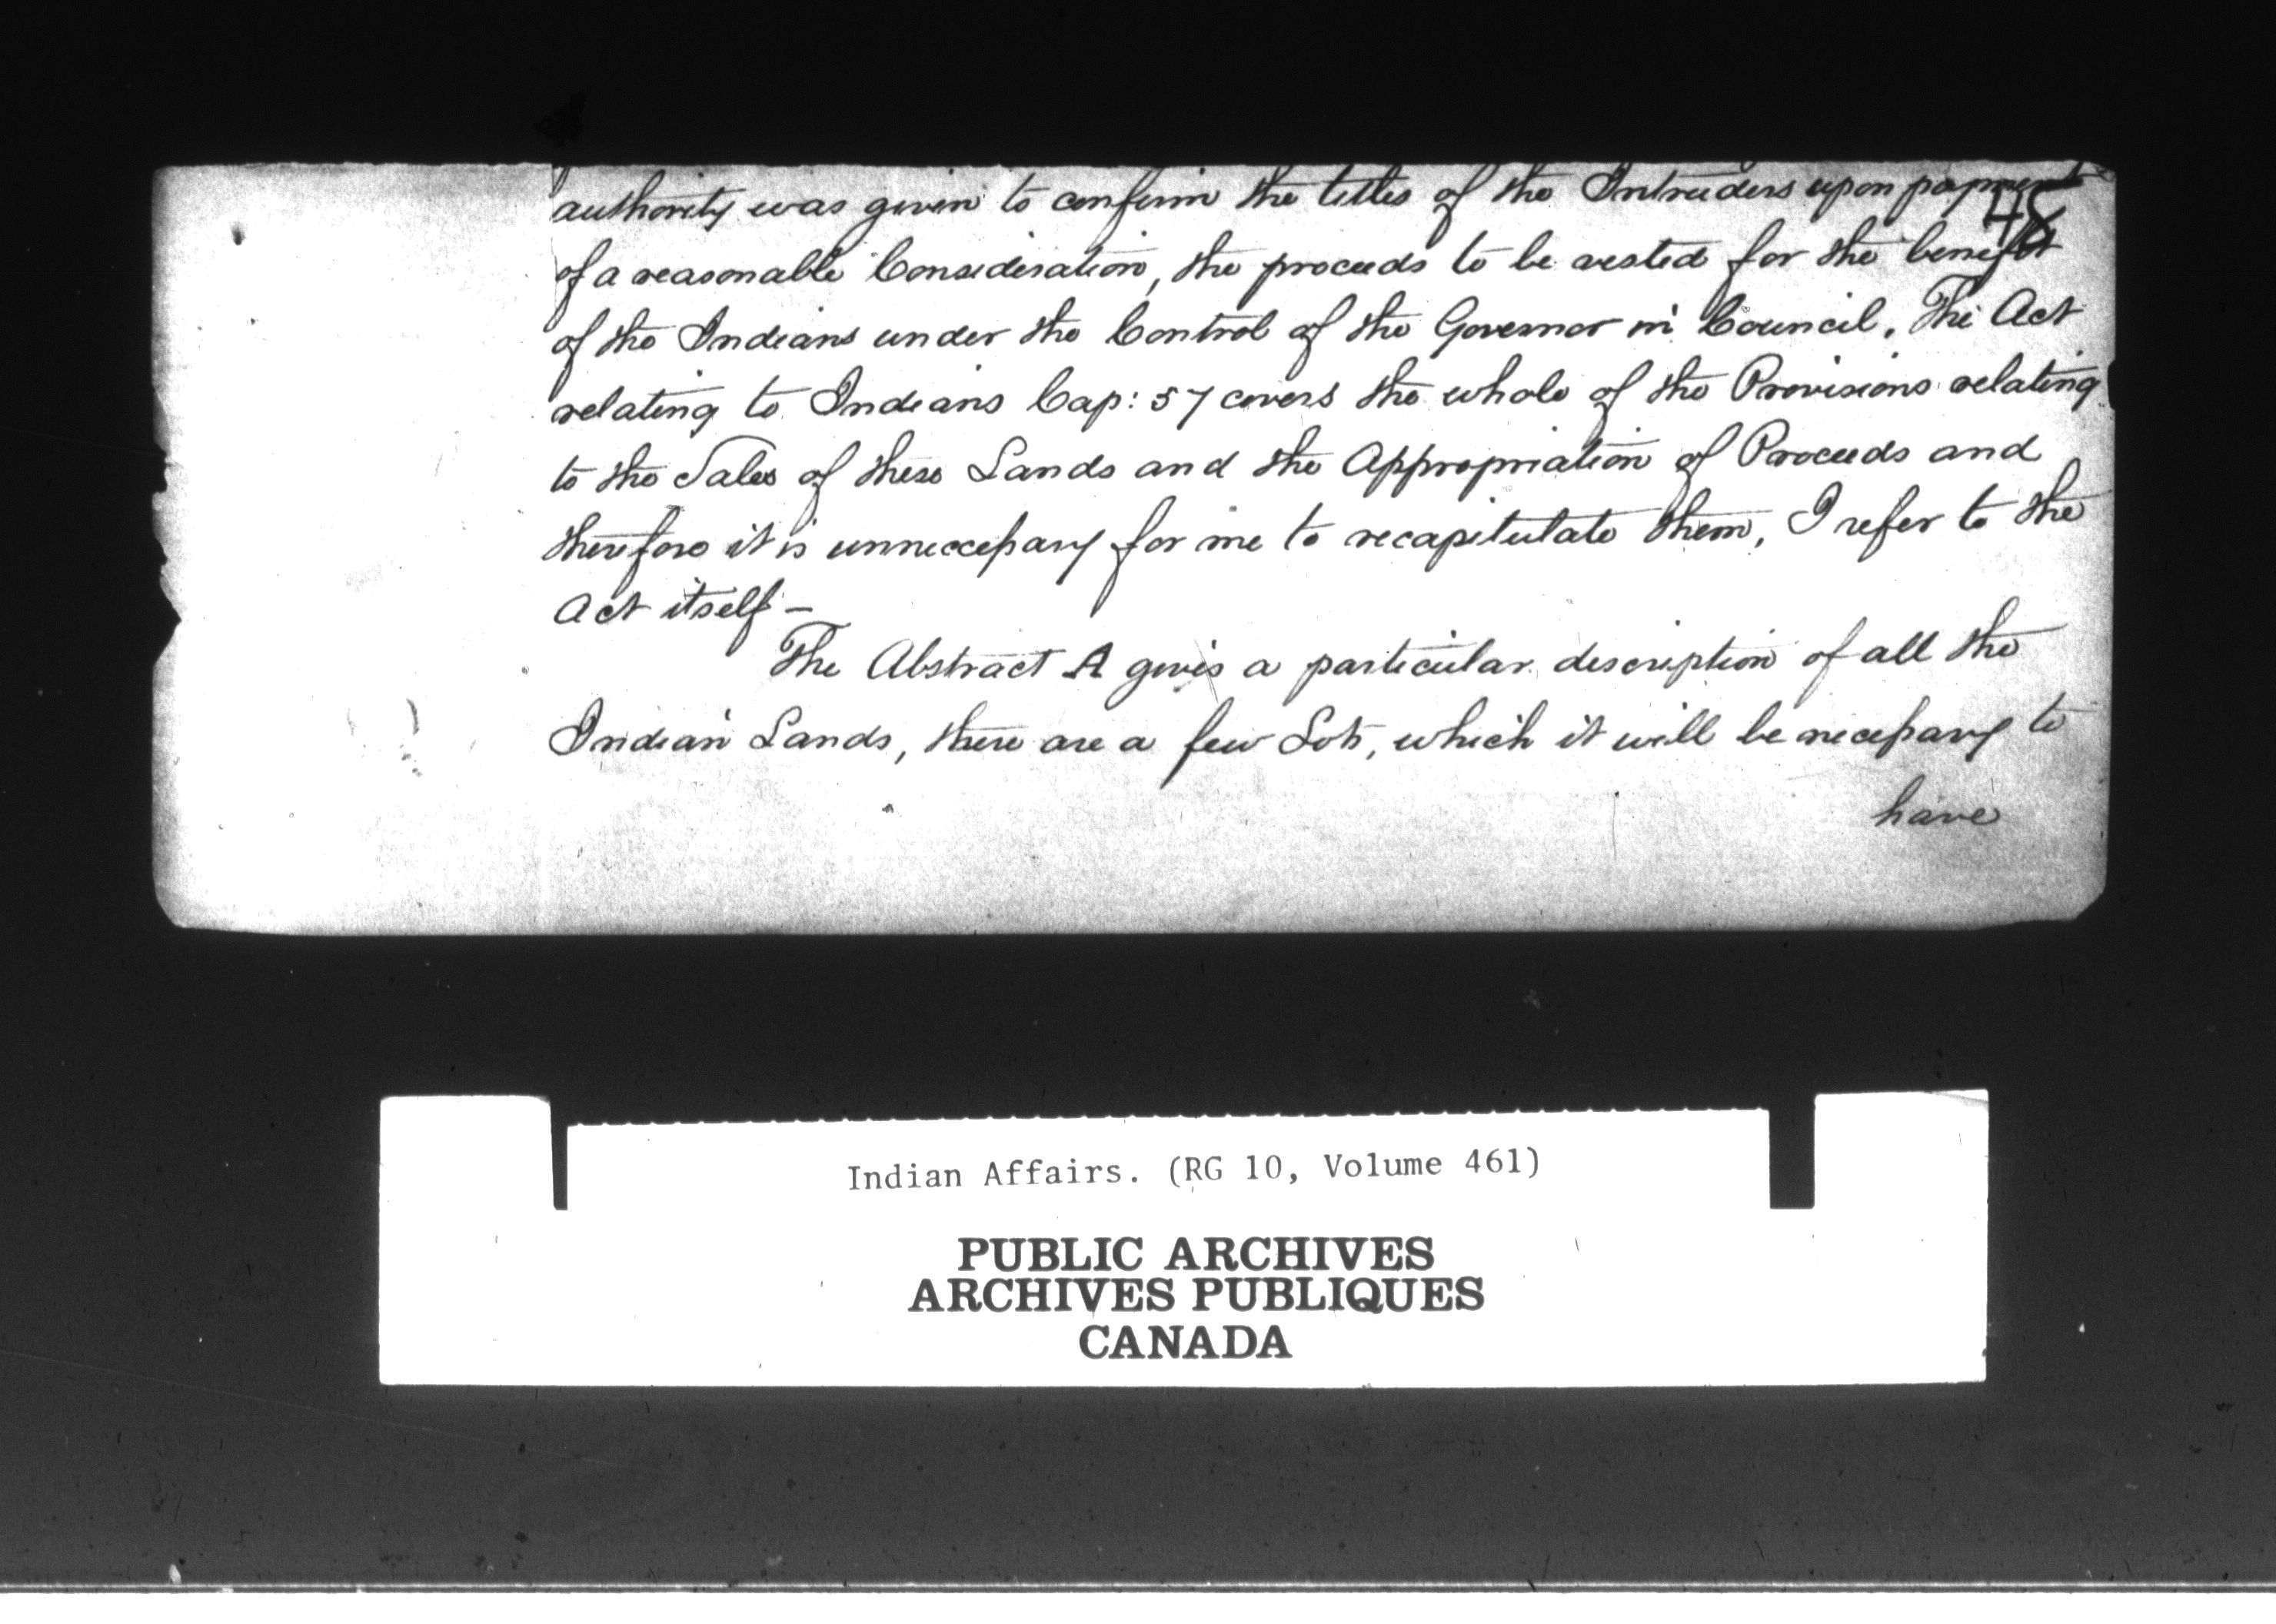 authority was given to confirm the titles of the Intruders upon payment
48
of a reasonable Consideration, the proceeds to be vested for the benefit
of the Indians under the Control of the Governor in Council. The Act
relating to Indians Cap: 57 covers the whole of the Provisions relating
to the Sales of these Lands and the Appropriation of Proceeds and
therefore it is unneccessary for me to recapitulate them, I refer to the
Act itself —
The Abstract A gives a particular description of all the
Indian Lands, there are a few Lots, which it will be necessary to
have
Indian Affairs. (RG 10, Volume 461)
PUBLIC ARCHIVES
ARCHIVES PUBLIQUES
CANADA